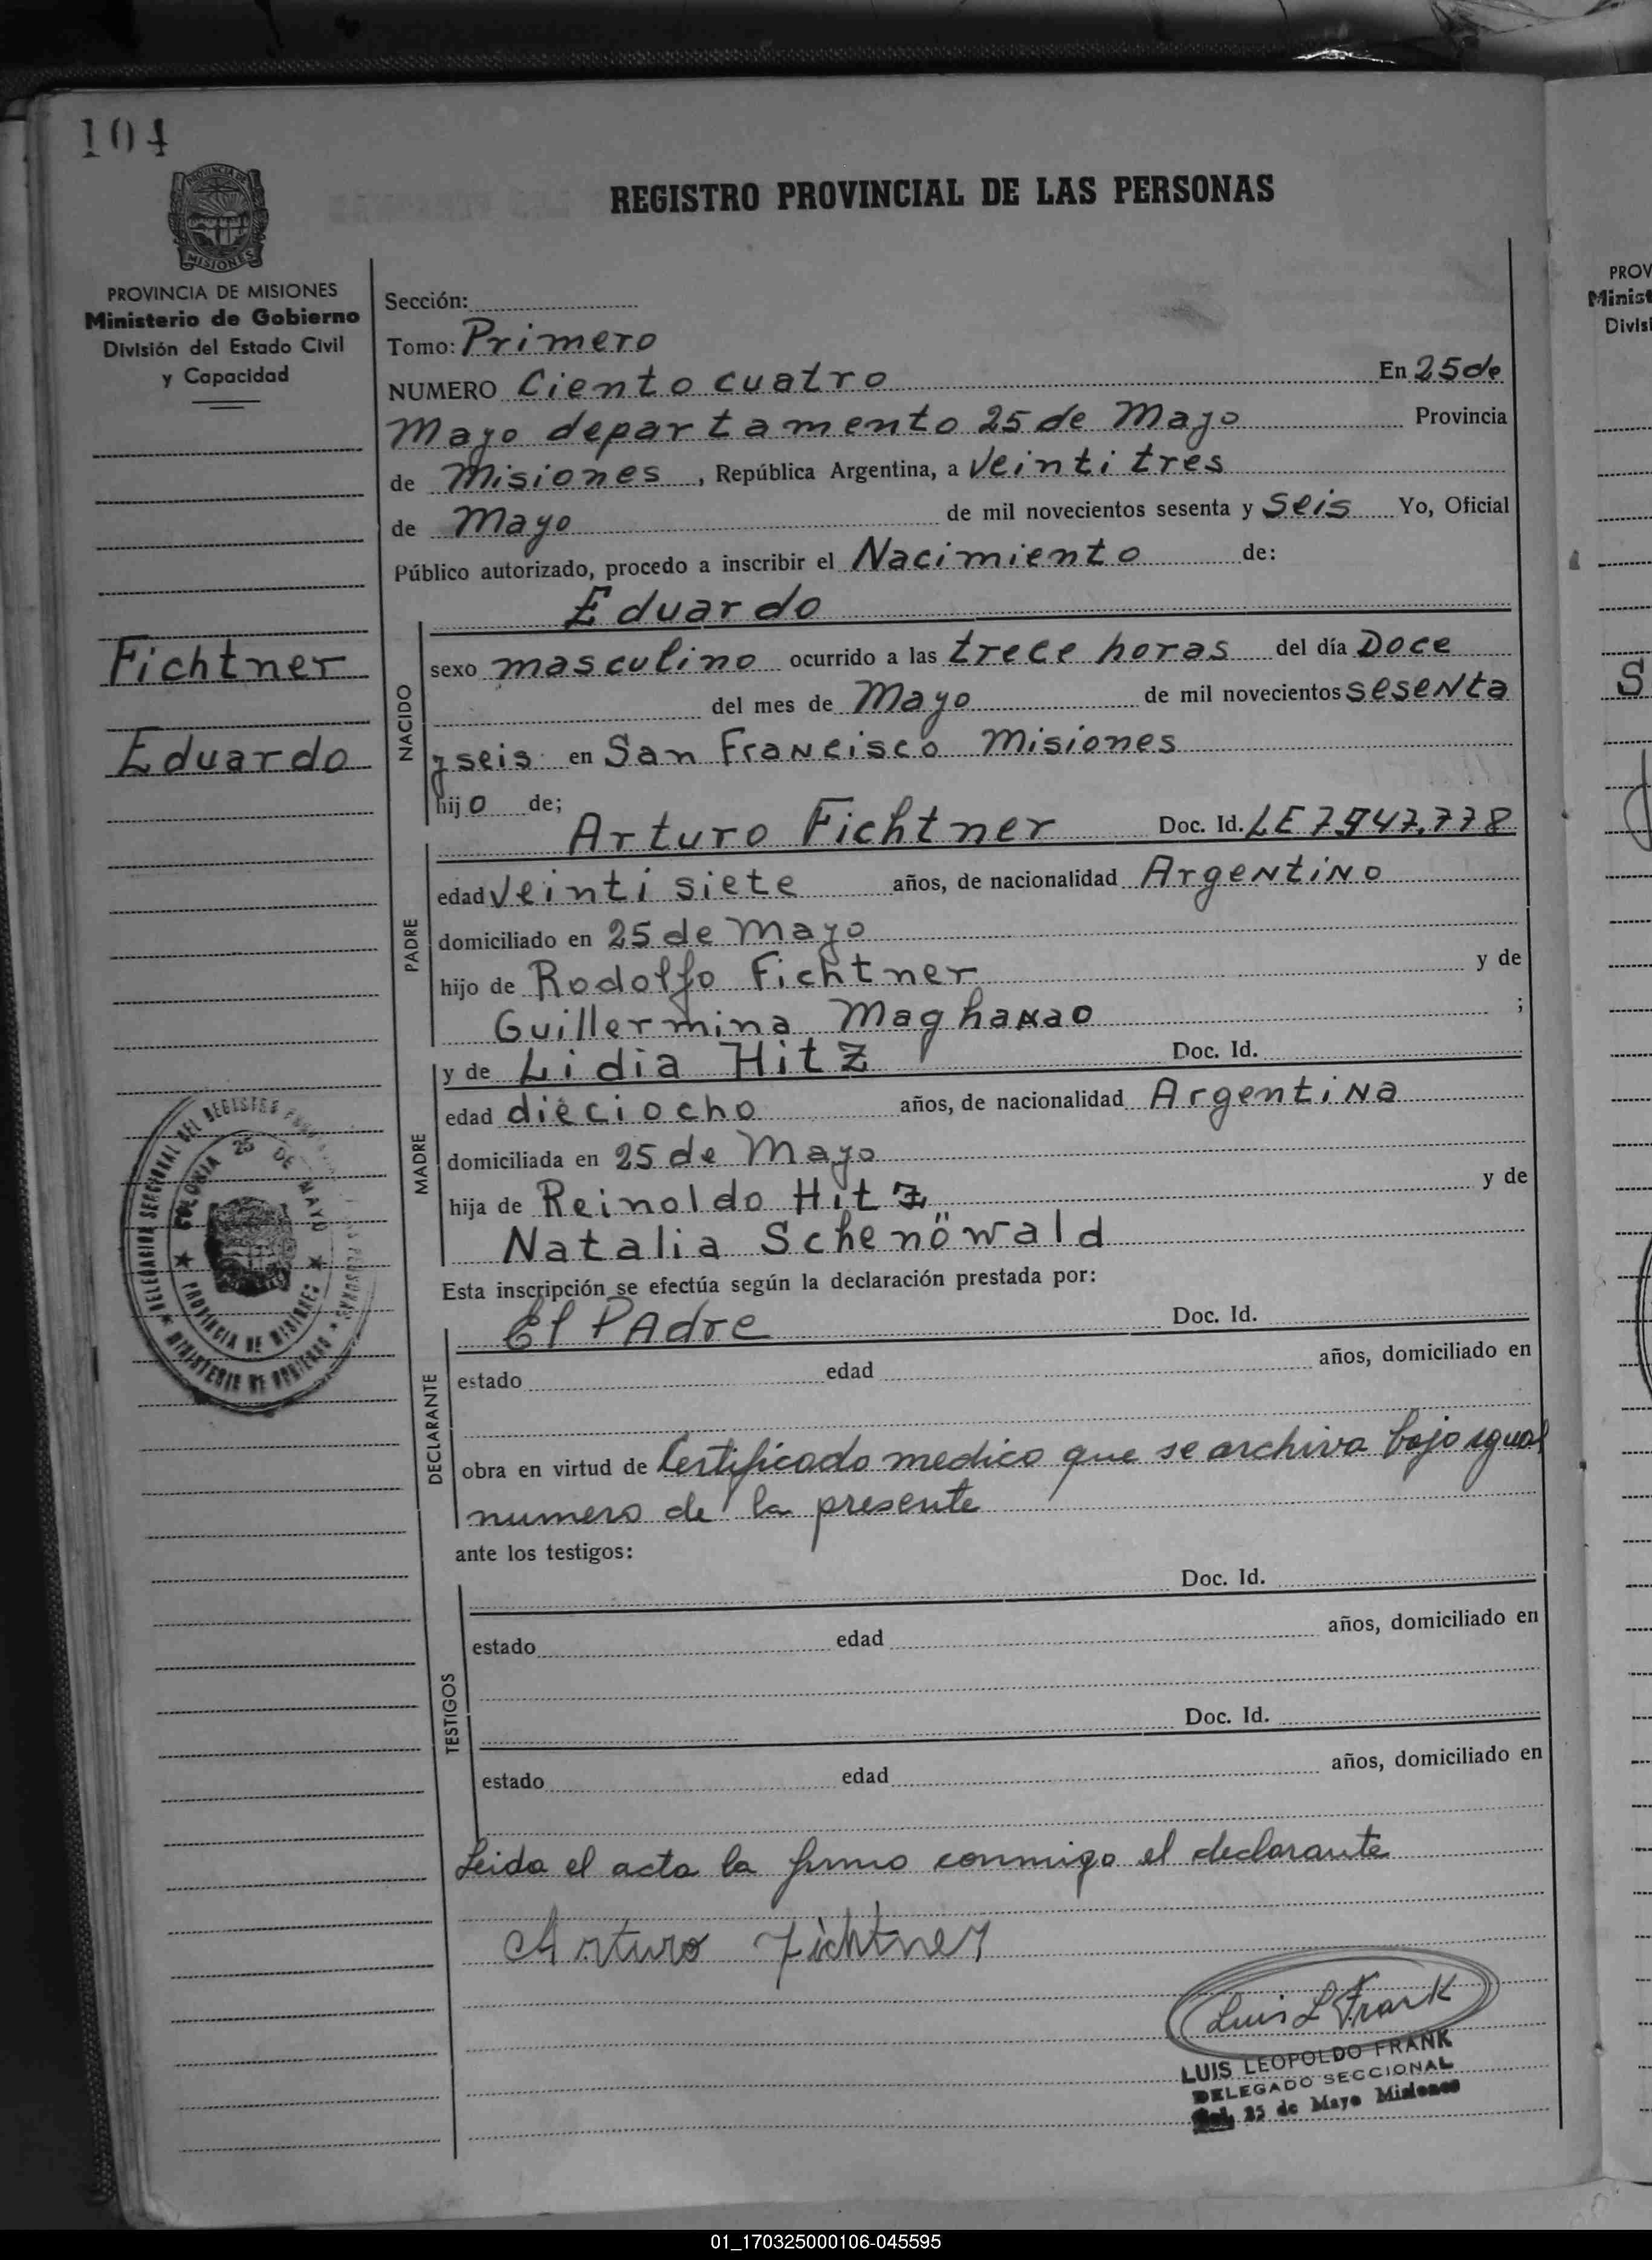 104
PROVINCIA DE
MISIONES
REGISTRO PROVINCIAL DE LAS PERSONAS
PROVINCIA DE MISIONES
Ministerio de Gobierno
División del Estado Civil
y Capacidad
Fichtner
Eduardo
DELEGACION SECCIONAL DEL REGISTRO PROVINCIAL DE LAS PERSONAS
COLONIA 25 DE MAYO
PROVINCIA DE MISIONES
MINISTERIO DE GOBIERNO
Sección:
Tomo: Primero
NUMERO Ciento cuatro En 25 de
Mayo departamento 25 de Mayo Provincia
de Misiones, República Argentina, a veinti tres
de Mayo de mil novecientos sesenta y seis Yo, Oficial
Público autorizado, procedo a inscribir el Nacimiento de:
Eduardo
NACIDO
sexo masculino ocurrido a las trece horas del día Doce
del mes de Mayo de mil novecientos sesenta
y seis en San Francisco Misiones
hijo de;
Arturo Fichtner Doc. Id. LE 7.947.778
PADRE
edad veinti siete años, de nacionalidad Argentino
domiciliado en 25 de Mayo
hijo de Rodolfo Fichtner y de
Guillermina ;
y de Lidia Hitz Doc. Id.
MADRE
edad dieciocho años, de nacionalidad Argentina
domiciliada en 25 de Mayo
hija de Reinoldo Hitz y de
Natalia Schenöwald
Esta inscripción se efectúa según la declaración prestada por:
El PAdre Doc. Id.
DECLARANTE
estado edad años, domiciliado en
obra en virtud de Certificado medico que se archiva bajo igual
numero de la presente
ante los testigos:
Doc. Id.
TESTIGOS
estado edad años, domiciliado en
Doc. Id.
estado edad años, domiciliado en
Leida el acta la firma conmigo el declarante
Arturo Fichtner
Luis L Frank
LUIS LEOPOLDO FRANK
DELEGADO SECCIONAL
Col. 25 de Mayo Misiones
PROV
Minist
Divisi
S
01_170325000106-045595